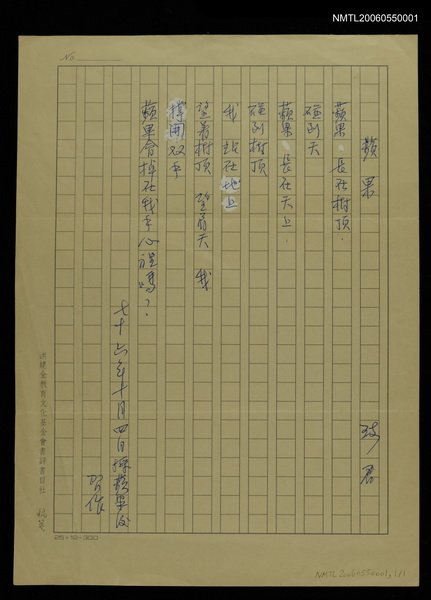 NMTL20060550001
No
蘋果
琦君
蘋果，長在樹頂，
碰到天
蘋果，長在天上，
碰到樹頂
我 站在地上
望着樹頂 望着天 我
撐開双手
蘋果會掉在我手心裡嗎？
七十六年十月四日採蘋果後
習作
洪建全教育文化基金會書評書目社
稿箋
25×12=300
NMTL20060550001, 1/1